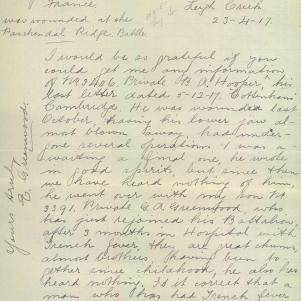 France.
Leigh Creek
was wounded at the
23-4-17.
Paschendal Ridge Battle.
I would be so grateful if you
could get me any information
of No 3406. Private B. A. Hooper, his
last letter dated 5-12-17, Cottenham
Cambridge. He was wounded last
October, having his lower jaw al-
most blown away, had under-
gone several operations & was a-
waiting a final one, he wrote
in good spirits, but since then
we have heard nothing of him,
he went over with my son No
3391 Private E. A. Greenwood, who
has just rejoined his Battalion
after 3 months in Hospital with
Trench fever, they are great chums
almost brothers, having been to-
gether since childhood, he also has
heard nothing. Is it correct that a
man who has had Trench fever
Yours truly
E. Greenwood.